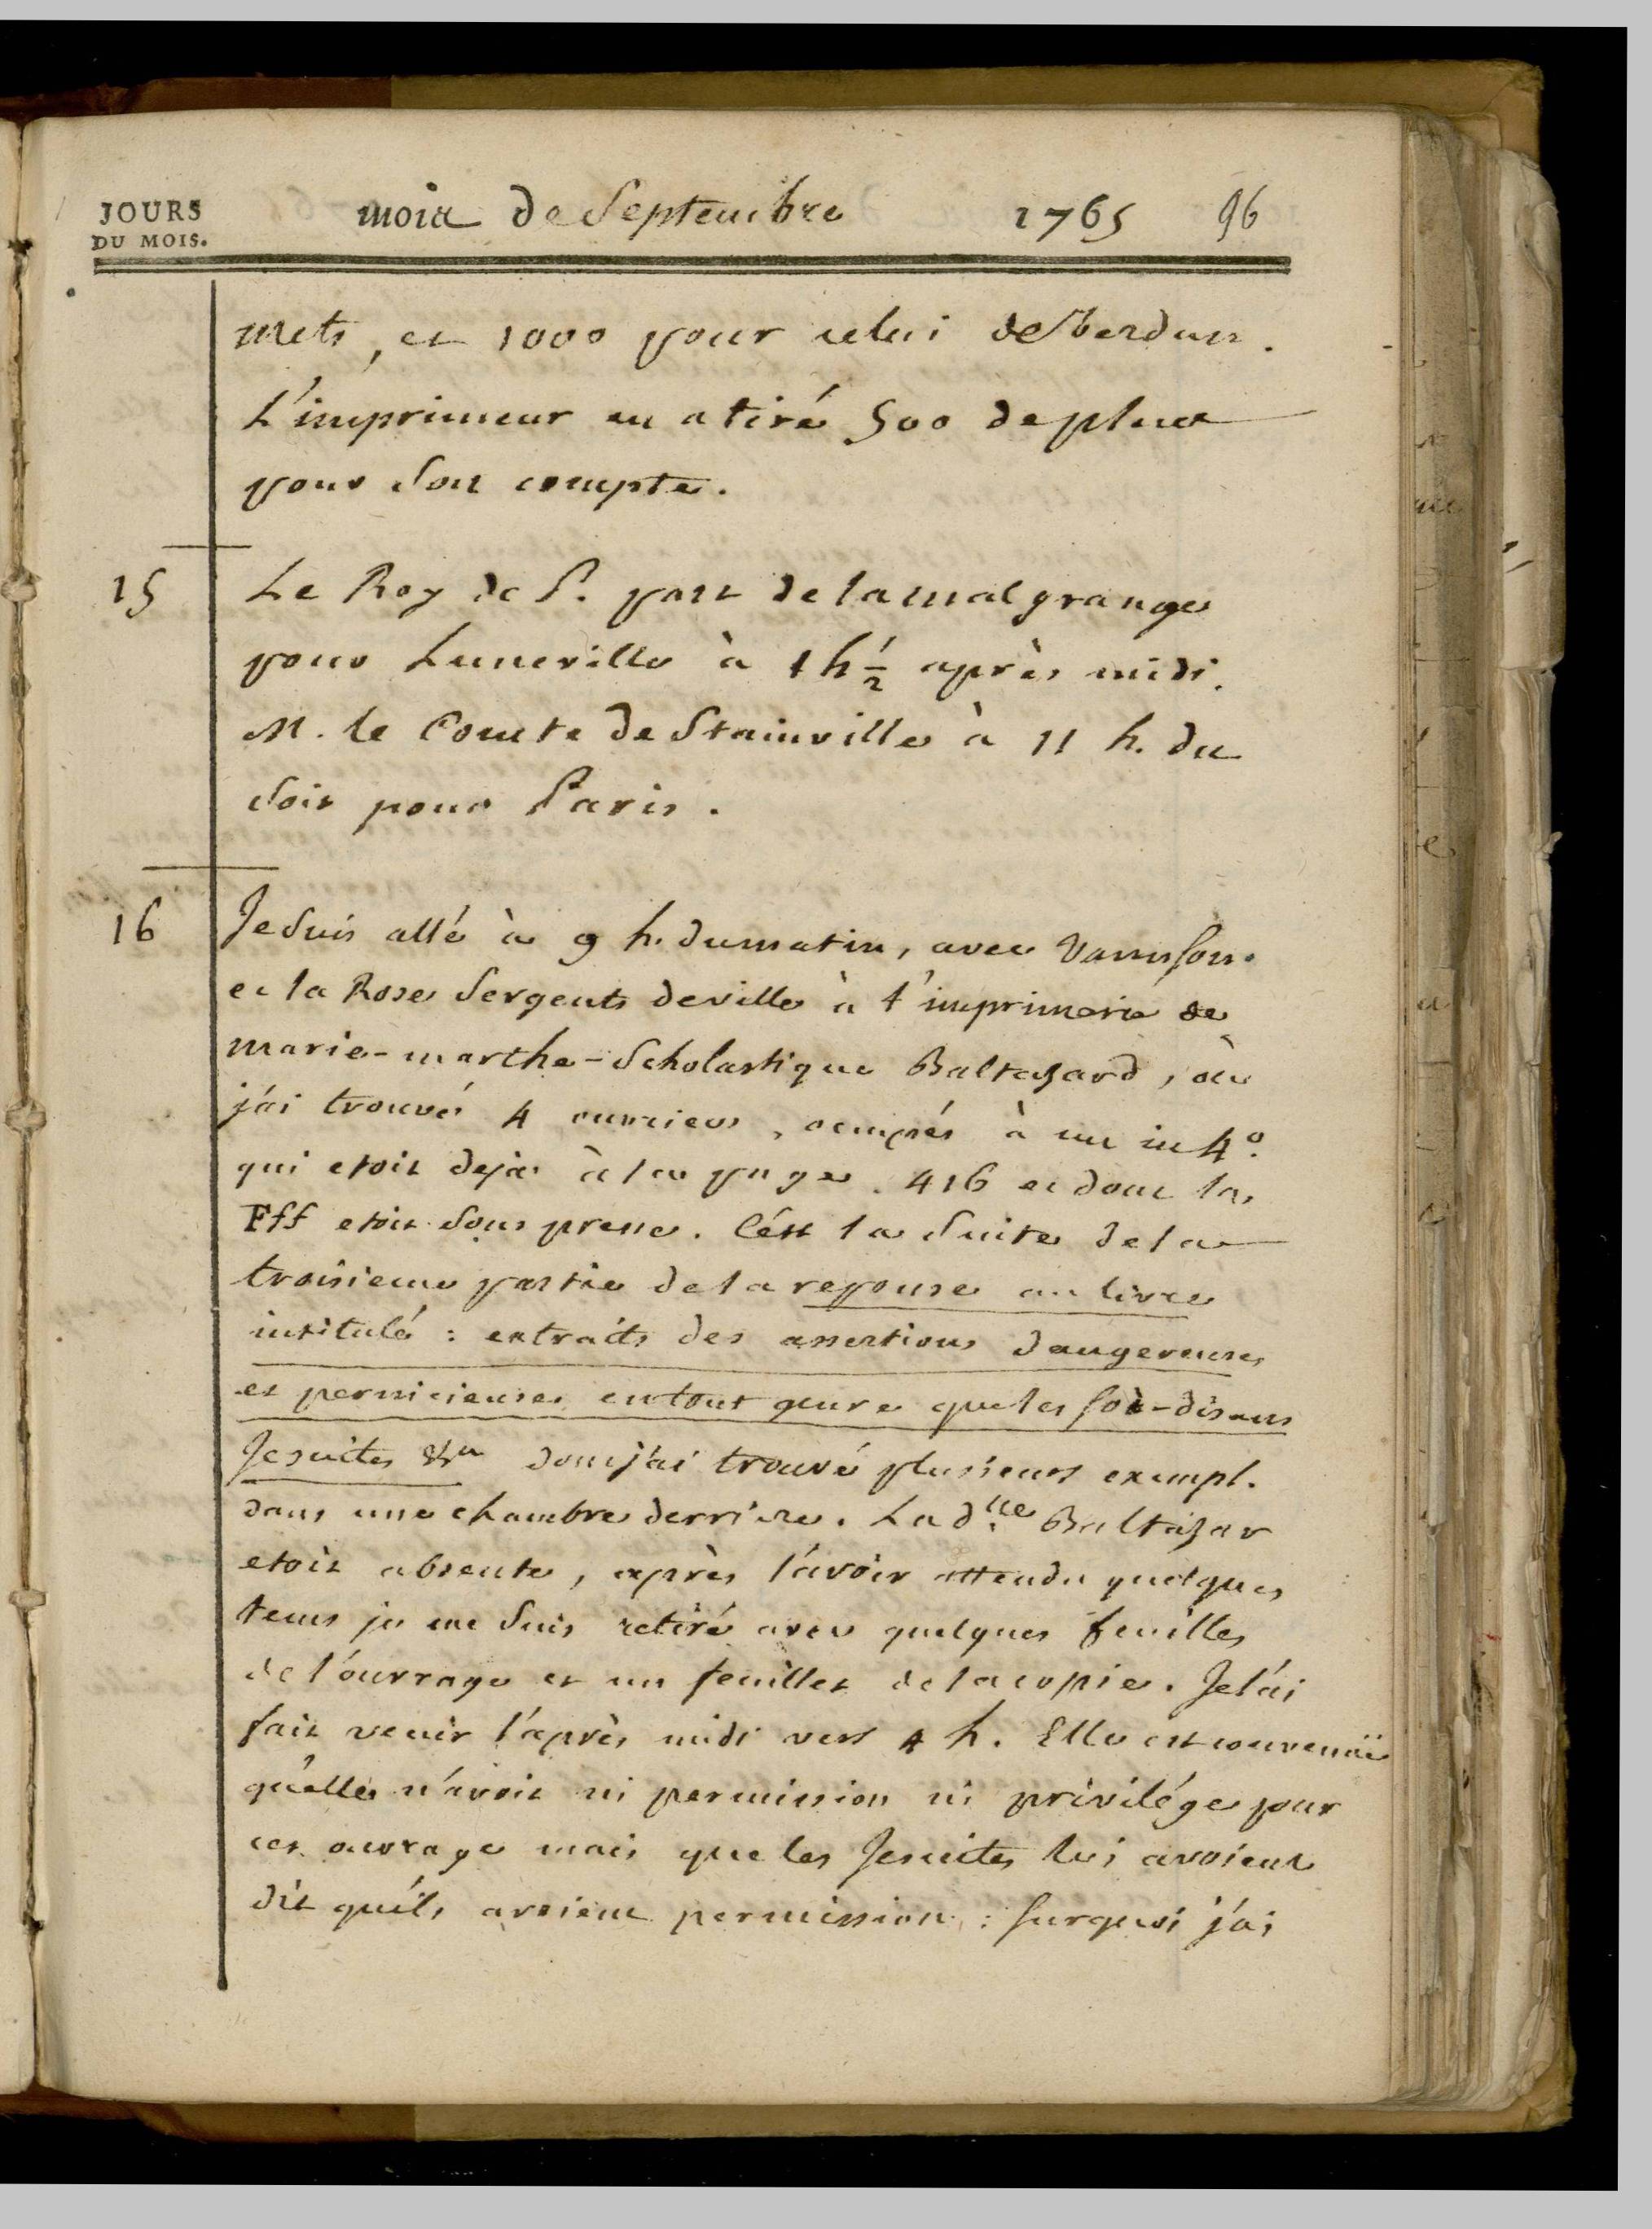 JOURS
DU MOIS.
mois de Septembre 1765 96
mets, et 1000 pour celui de Verdun.
L'imprimeur en a tiré 500 de plus
pour son compte.
15 Le Roy de P. part de la malgrange
pour Luneville à 1 h 1/2 après midi.
M. le Comte de Stainville à 11 h. du
soir pour Paris.
16 Je suis allé à 9 h. du matin, avec
et la Rose sergents de ville à l'imprimerie de
marie-marthe-Scholastique Baltazard, où
j'ai trouvé 4 ouvriers, occupés à un in 4º.
qui etoit deja à la page. 416 et dont la,
Fff etoit sous presse. C'est la suite de la
troisieme partie de la reponse au livre
intitulé : extraits des assertions dangereuses
et pernicieuses en tout genre que les soi-disans
Jesuites &a dont j'ai trouvé plusieurs exempl.
dans une chambre derriere. La dlle. Baltazar
etoit absente, après l'avoir attendu quelques
tems je me suis retiré avec quelques feuilles
de l'ouvrage et un feuillet de la copie. Je l'ai
fait venir l'après midi vers 4 h. Elle est convenuë
qu'elle n'avoit ni permission ni privilége pour
cet ouvrage mais que les Jesuites lui avoient
dit qu'ils avoient permission : surquoi j'ai